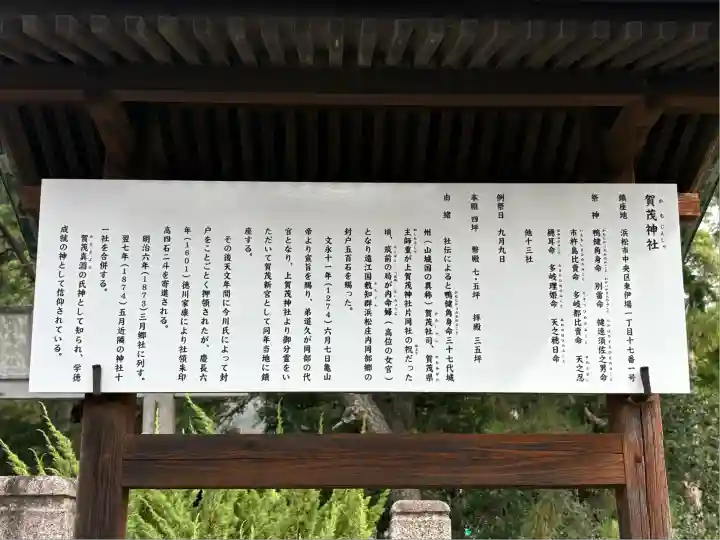 賀茂神社
鎮座地 浜松市中央区東伊場一丁目十七番一号
祭神 鴨健角身命 別雷命 健速須佐之男命
市杵島比賣命 多岐都比賣命 天之忍
穂耳命 多岐理姫命 天之穂日命
他十三社
例祭日 九月九日
本殿 四坪 幣殿 七・五坪 拝殿 三五坪
由緒 社伝によると鴨健角身命三十七代城
州(山城国の異称)賀茂社司、賀茂県
主師重が上賀茂神社片岡社の祝だった
頃、筑前の局が内命婦(高位の女官)
となり遠江国敷知郡浜松庄内岡部郷の
封戸五百石を賜った。
文永十一年(1274)六月七日亀山
帝より宣旨を賜り、弟道久が岡部の代
官となり、上賀茂神社より御分霊をい
ただいて賀茂新宮として同年当地に鎮
座する。
その後天文年間に今川氏によって封
戸をことごとく押領されたが、慶長六
年(1601)徳川家康により社領朱印
高四石二斗を寄進される。
明治六年(1873)三月郷社に列す。
翌七年(1874)五月近隣の神社十
一社を合併する。
賀茂真淵の氏神として知られ、学徳
成就の神として信仰されている。